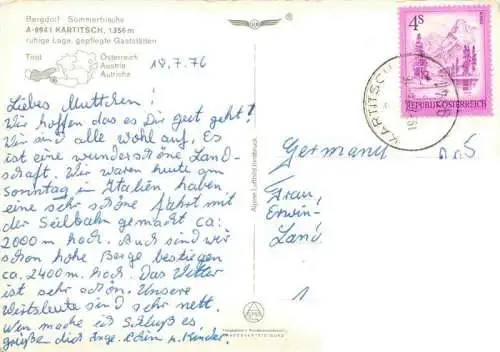 Bergdorf Sommerfrische
A-9941 KARTITSCH, 1356 m
ruhige Lage, gepflegte Gaststätten
Tirol
Österreich
Austria
Autriche
18.7.76
Liebes Muttchen!
Wir hoffen das es Dir gut geht!
Wir sind alle wohl auf. Es
ist eine wunderschöne Land-
schaft. Wir waren heute am
Sonntag in Italien, haben
eine sehr schöne Fahrt mit
der Seilbahn gemacht ca:
2000 m hoch. Auch sind wir
schon hohe Berge bestiegen
ca. 2400 m. hoch. Das Wetter
ist sehr schön. Unsere
Wirtsleute sind sehr nett.
Nun mache ich Schluß es
grüßen dich Inge, Edwin u. Kinder.
Alpine Luftbild Innsbruck
4S
REPUBLIK ÖSTERREICH
KARTITSCH
Germany
Frau,
Erwin-
Land
1